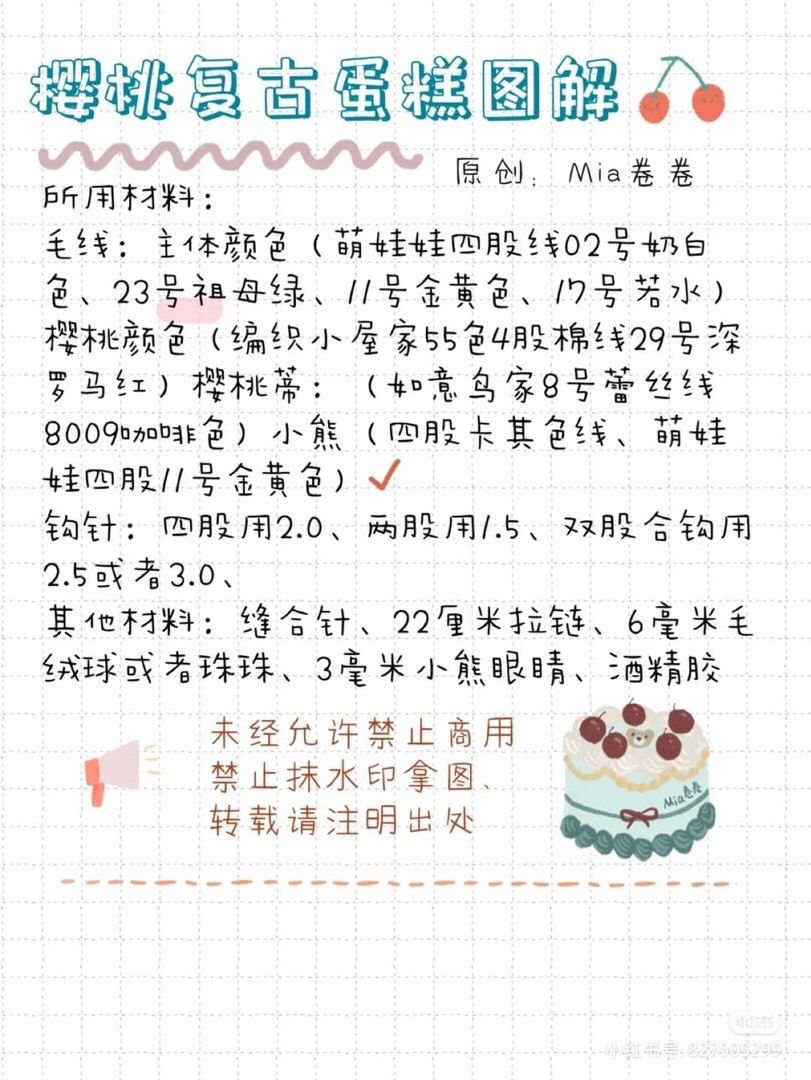 樱桃复古蛋糕图解
原创：Mia卷卷
所用材料：
毛线：主体颜色（萌娃娃四股线02号奶白
色、23号祖母绿、11号金黄色、17号若水）
樱桃颜色（编织小屋家55色4股棉线29号深
罗马红）樱桃蒂：（如意鸟家8号蕾丝线
8009咖啡色）小熊（四股卡其色线、萌娃
娃四股11号金黄色）
钩针：四股用2.0、两股用1.5、双股合钩用
2.5或者3.0、
其他材料：缝合针、22厘米拉链、6毫米毛
绒球或者珠珠、3毫米小熊眼睛、酒精胶
未经允许禁止商用
禁止抹水印拿图、
转载请注明出处
Mia卷卷
小红书
小红书号:827505299